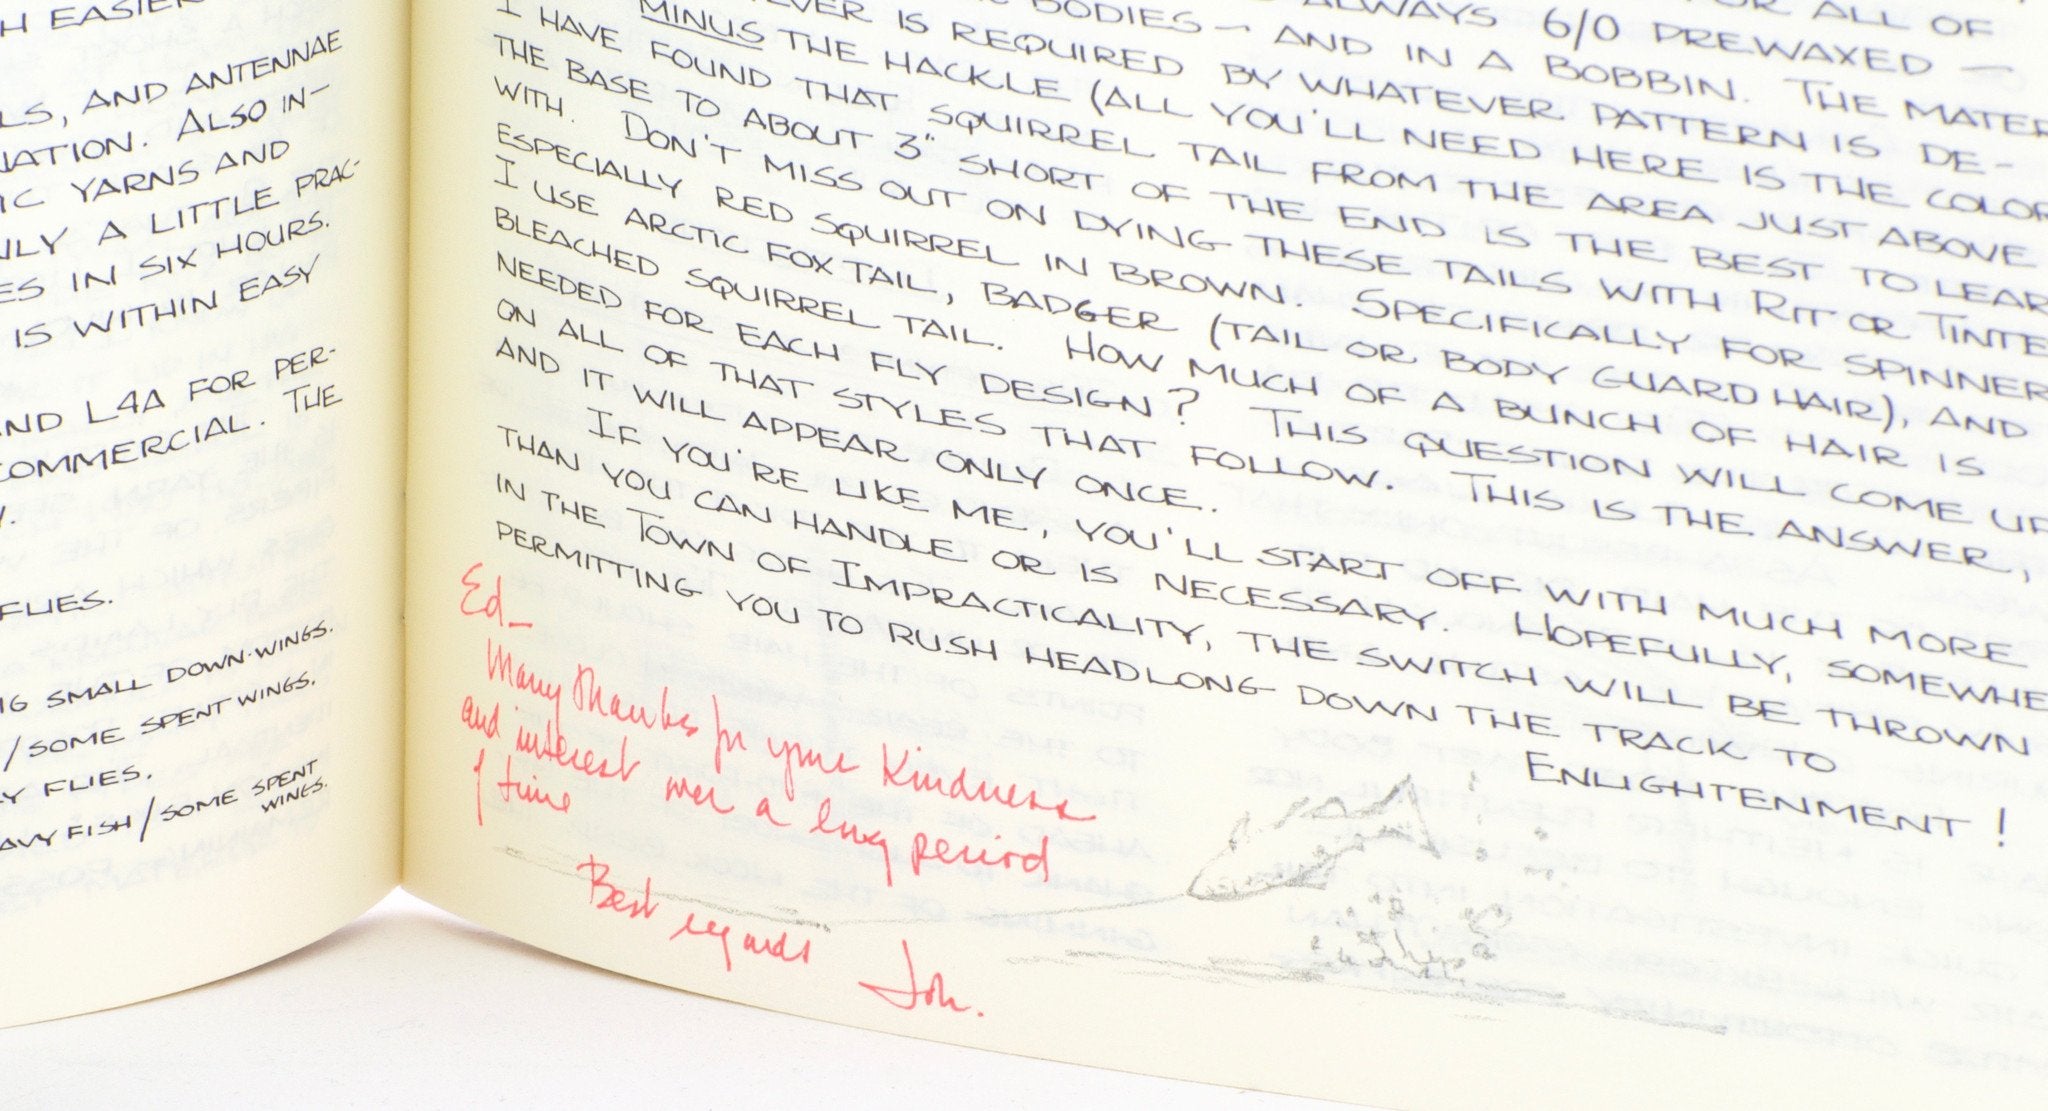 EASIER
LS, AND ANTENNAE
NATION. ALSO IN-
IC YARNS AND
NLY A LITTLE PRAC-
ES IN SIX HOURS.
IS WITHIN EASY
ND L4A FOR PER-
COMMERCIAL. THE
Y.
FLIES.
NG SMALL DOWN-WINGS.
/SOME SPENT WINGS.
Y FLIES.
AVY FISH/SOME SPENT
WINGS.
FOR ALL OF
ALWAYS 6/0 PREWAXED —
BODIES — AND IN A BOBBIN. THE MATER
EVER IS REQUIRED BY WHATEVER PATTERN IS DE-
MINUS THE HACKLE (ALL YOU'LL NEED HERE IS THE COLOR
I HAVE FOUND THAT SQUIRREL TAIL FROM THE AREA JUST ABOVE
THE BASE TO ABOUT 3" SHORT OF THE END IS THE BEST TO LEAR
WITH. DON'T MISS OUT ON DYING THESE TAILS WITH RIT OR TINTE
ESPECIALLY RED SQUIRREL IN BROWN. SPECIFICALLY FOR SPINNER
I USE ARCTIC FOX TAIL, BADGER (TAIL OR BODY GUARD HAIR), AND
BLEACHED SQUIRREL TAIL. HOW MUCH OF A BUNCH OF HAIR IS
NEEDED FOR EACH FLY DESIGN? THIS QUESTION WILL COME UP
ON ALL OF THAT STYLES THAT FOLLOW. THIS IS THE ANSWER,
AND IT WILL APPEAR ONLY ONCE.
IF YOU'RE LIKE ME, YOU'LL START OFF WITH MUCH MORE
THAN YOU CAN HANDLE OR IS NECESSARY. HOPEFULLY, SOMEWHE
IN THE TOWN OF IMPRACTICALITY, THE SWITCH WILL BE THROWN
PERMITTING YOU TO RUSH HEADLONG DOWN THE TRACK TO
ENLIGHTENMENT!
Ed—
Many thanks for your kindness
and interest over a long period
of time
Best regards